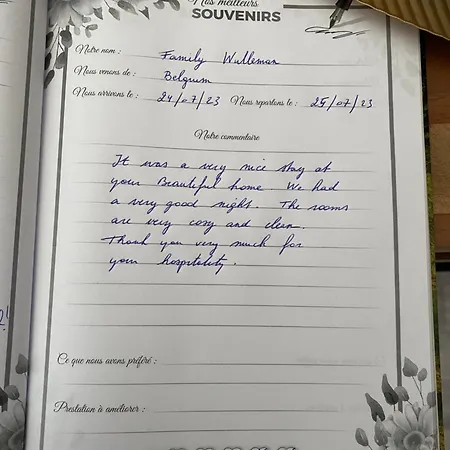 Nos meilleurs
SOUVENIRS
Notre nom : Family Wulleman
Nous venons de : Belgium
Nous arrivons le : 24/07/23 Nous repartons le : 25/07/23
Notre commentaire
It was a very nice stay at
your Beautiful home. We had
a very good night. The rooms
are very cosy and clean.
Thank you very much for
your hospitality.
Ce que nous avons préféré :
Prestation à améliorer :